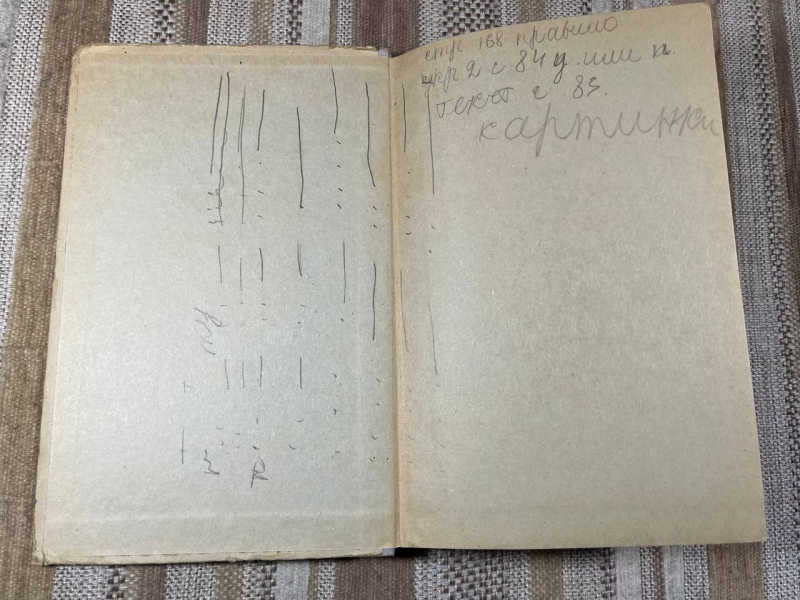 стр 168 правило
упр 2 с 84 у. или п.
текст с 83.
картинки